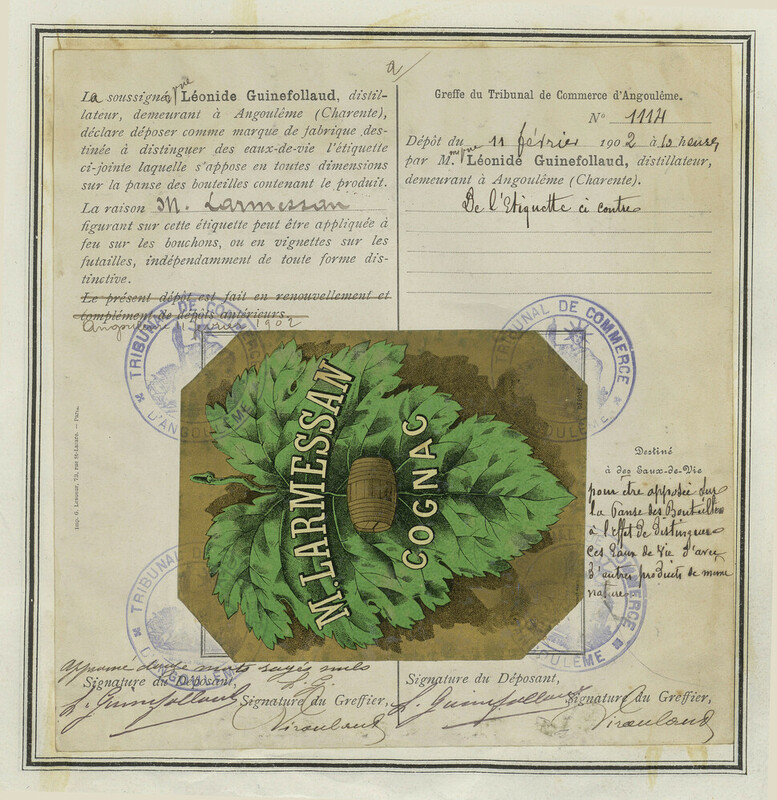 a
La soussignée Léonide Guinefollaud, distil-
lateur, demeurant à Angoulême (Charente),
déclare déposer comme marque de fabrique des-
tinée à distinguer des eaux-de-vie l'étiquette
ci-jointe laquelle s'appose en toutes dimensions
sur la panse des bouteilles contenant le produit.
La raison M. Larmessan
figurant sur cette étiquette peut être appliquée à
feu sur les bouchons, ou en vignettes sur les
futailles, indépendamment de toute forme dis-
tinctive.
Le présent dépôt est fait en renouvellement et
complément de dépôts antérieurs.
Angoulême 1902
Greffe du Tribunal de Commerce d'Angoulême.
N° 1114
Dépôt du 11 février 1902 à 10 heures
par M. Léonide Guinefollaud, distillateur,
demeurant à Angoulême (Charente).
De l'Etiquette ci contre
TRIBUNAL DE COMMERCE
D'ANGOULEME
TRIBUNAL DE COMMERCE
D'ANGOULEME
M. LARMESSAN
COGNAC
Destiné
à des Eaux-de-Vie
pour être apposée sur
la Panse des Bouteilles
à l'effet de distinguer
Ces Eaux de Vie d'avec
d'autres produits de même
nature
TRIBUNAL
D'ANGOULEME
COMMERCE
D'ANGOULEME
Approuvé douze mots rayés nuls
Signature du Déposant,
L. Guinefollaud
Signature du Greffier,
Viroulaud
Signature du Déposant,
L. Guinefollaud
Signature du Greffier,
Viroulaud